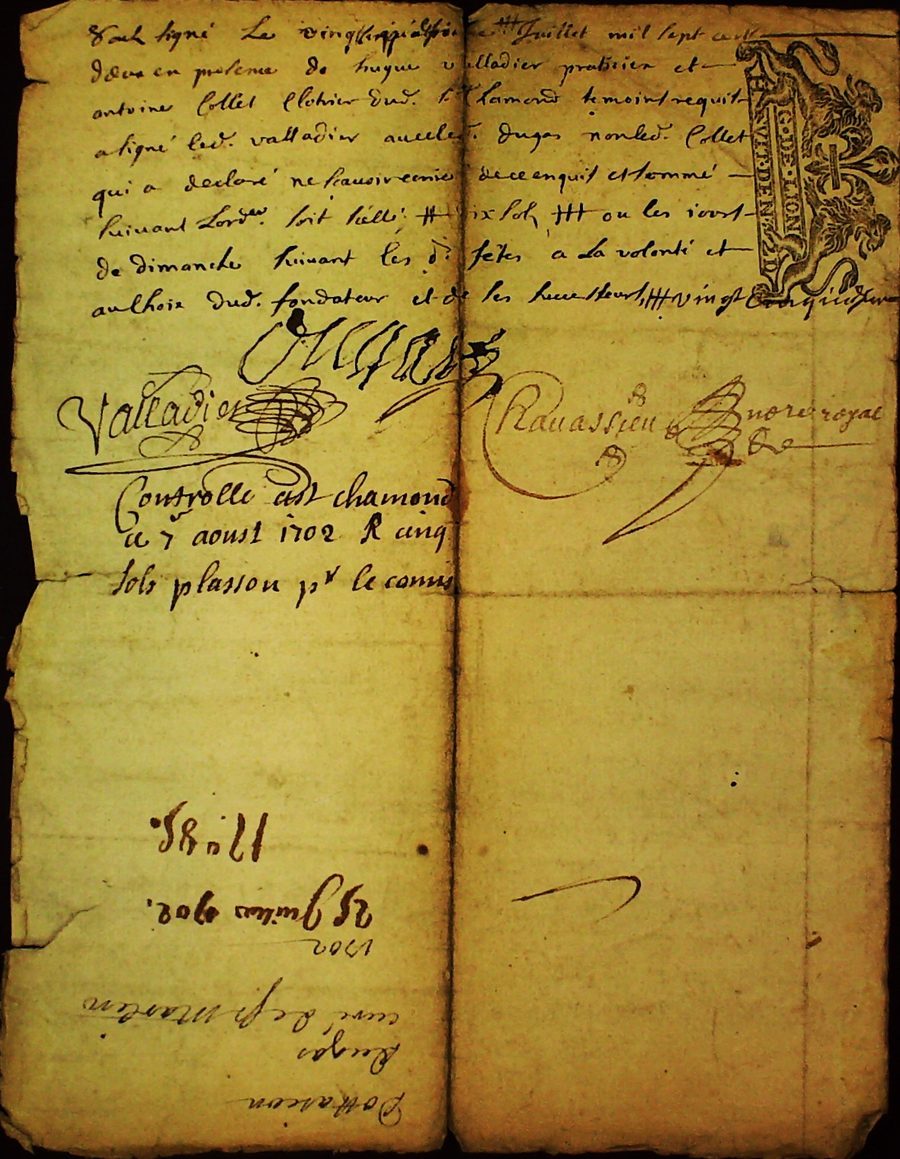 signé Le vingt Juillet mil sept cent
deux en presence de hugue valladier praticien et
antoine Collet Clotrier dud. st Chamond temoins requis
a signé led. valladier avec led. dugas non led. Collet
qui a declaré ne scavoir ecrire de ce enquis et sommé
suivant Lord.ce soit sellé six sols ou les jours
de dimanche suivant les d. fêtes a La volonté et
au choix dud. fondateur et de ses successeurs, vingt cinquieme
Dugas
Valladier
Rauassieu no.re royal
Controlle a st chamond
ce 7 aoust 1702 R cinq
sols plasson p.r le comis
G. DE. LION
HVIT. DEN.
25 Juillet 1702.
1702
curé de st Martin
dugas